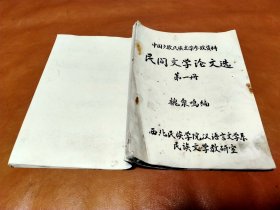 中国少数民族文学参考资料
民间文学论文选
第一册
魏泉鸣编
西北民族学院汉语言文学系
民族文学教研室